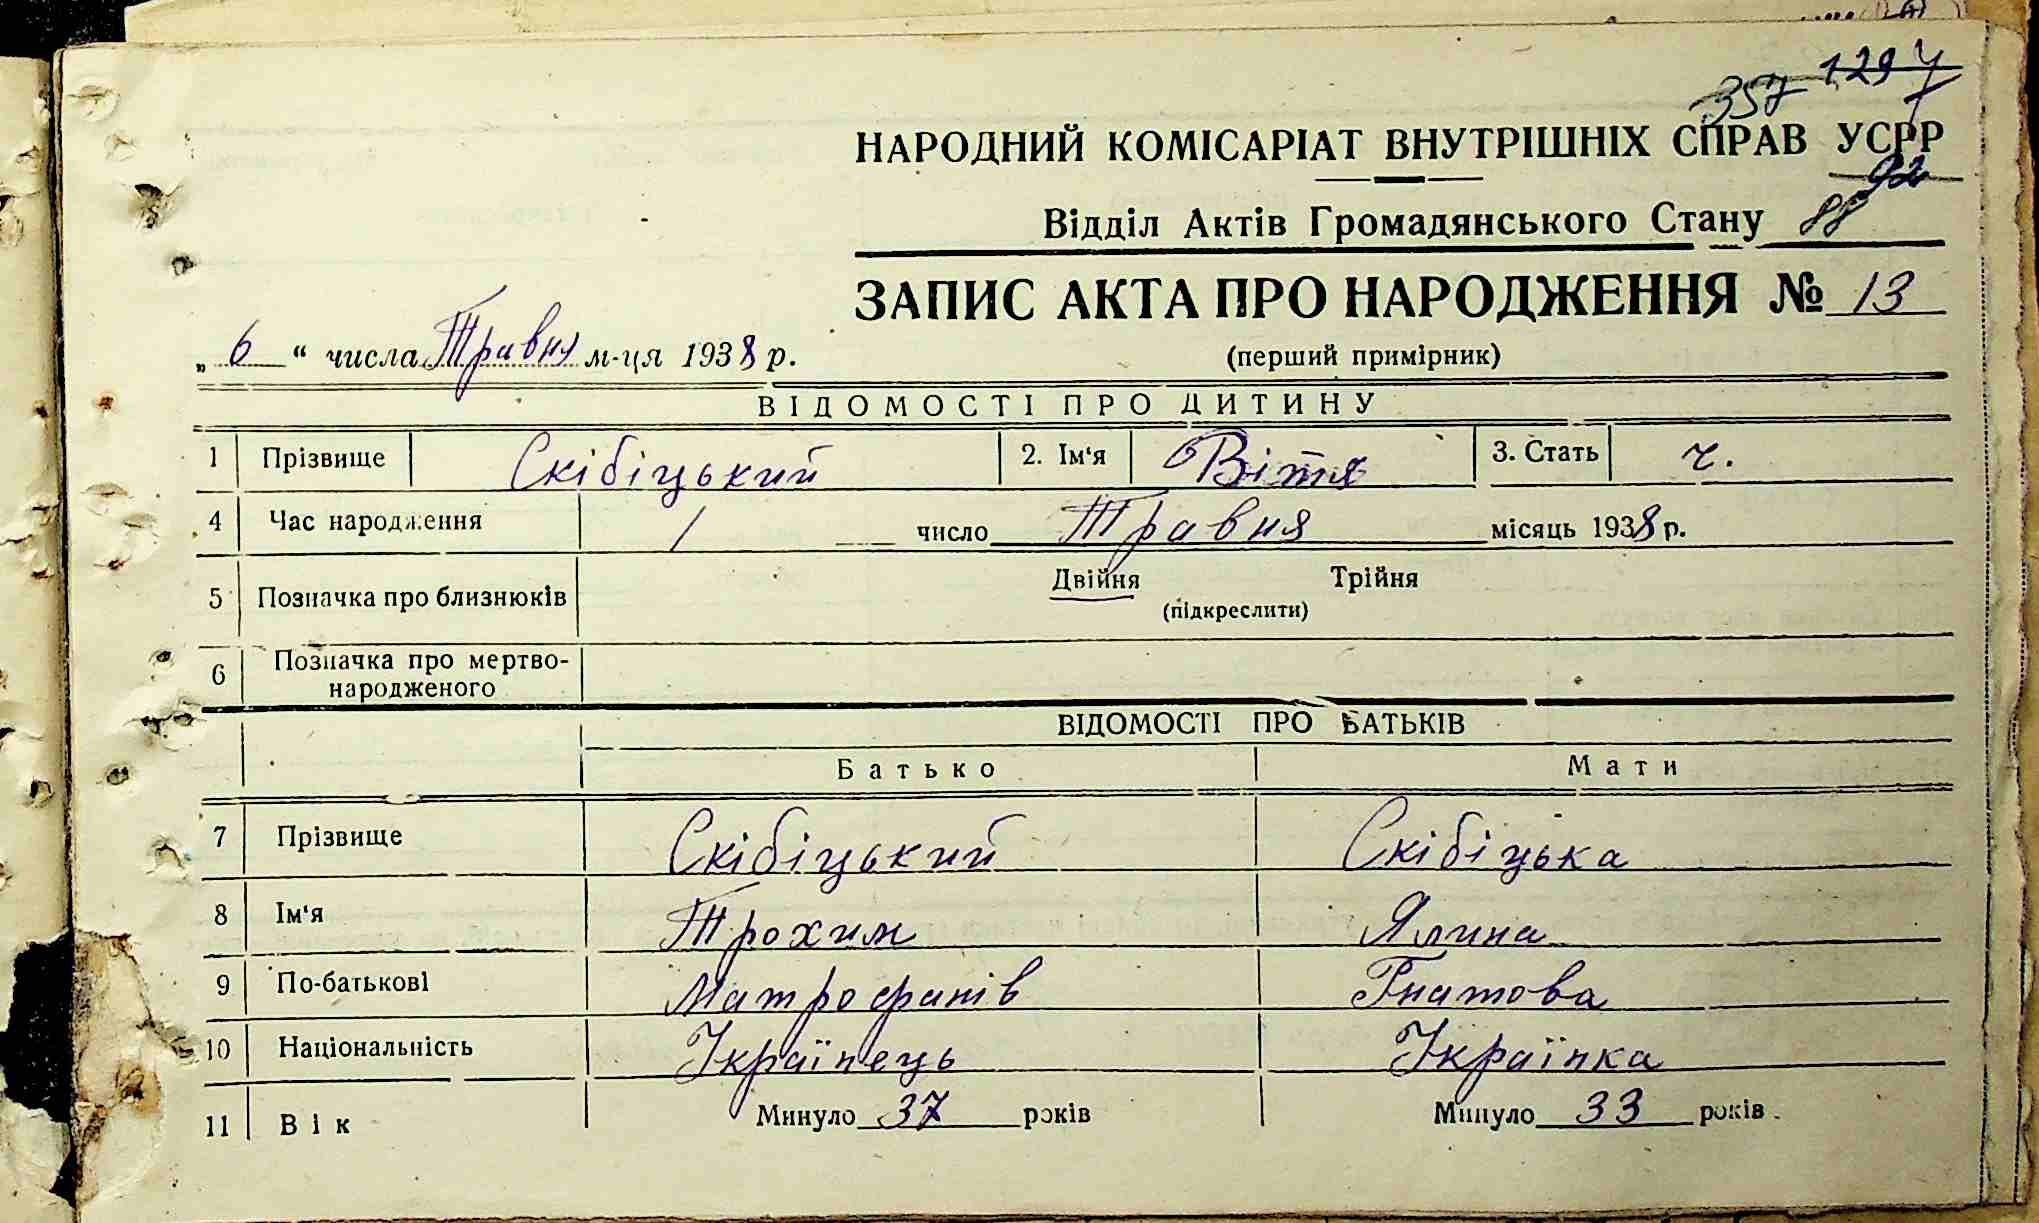 357 1297
НАРОДНИЙ КОМІСАРІАТ ВНУТРІШНІХ СПРАВ УСРР
92
Відділ Актів Громадянського Стану 88
ЗАПИС АКТА ПРО НАРОДЖЕННЯ № 13
„ 6 “ числа Травня м-ця 1938 р.
(перший примірник)
ВІДОМОСТІ ПРО ДИТИНУ
1 Прізвище Скібіцький 2. Ім‘я Вітя 3. Стать ч.
4 Час народження 1 число Травня місяць 1938 р.
5 Позначка про близнюків Двійня Трійня
(підкреслити)
6 Позначка про мертво-
народженого
ВІДОМОСТІ ПРО БАТЬКІВ
Батько Мати
7 Прізвище Скібіцький Скібіцька
8 Ім‘я Трохим Ялина
9 По-батькові Матрофанів Гнатова
10 Національність Українець Українка
11 Вік Минуло 37 років Минуло 33 років